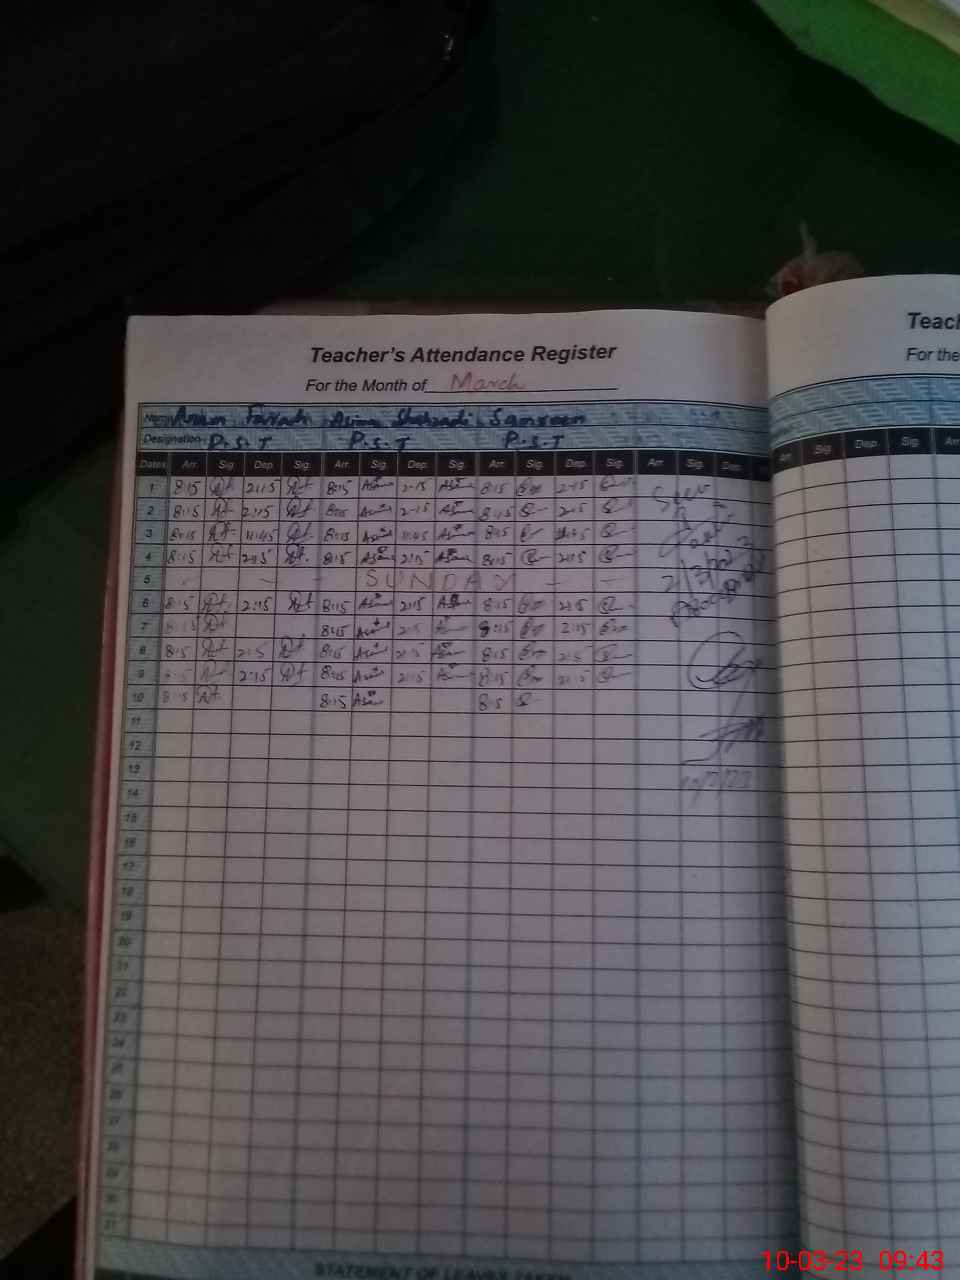 Teacher's Attendance Register
For the Month of March
Name Anum Farrach Asima Shahzadi Samreen
Designation P.S.T P.S.T P.S.T
Dates Arr. Sig. Dep. Sig. Arr. Sig. Dep. Sig. Arr. Sig. Dep. Sig. Arr. Sig. Dep.
1 8:15 2:15 8:15 Asima 2-15 Asima 8:15 2-15
2 8:15 2:15 8:15 Asima 2-15 Asima 8:15 2:15
3 8:15 11:45 8:15 Asima 11:45 Asima 8:15 11:45
4 8:15 2:15 8:15 Asima 2:15 Asima 8:15 2:15
5 SUNDAY
6 8:15 2:15 8:15 Asima 2:15 Asima 8:15 2:15
7 8:15 8:15 Asima 2:15 8:15 2:15
8 8:15 2:15 8:15 Asima 2:15 Asima 8:15 2:15
9 8:15 2:15 8:15 Asima 2:15 Asima 8:15 2:15
10 8:15 8:15 Asima 8:15
11
12
13
14
15
16
17
18
19
20
21
22
23
24
25
26
27
28
29
30
31
STATEMENT OF LEAVES TAKEN
Seen
2/3/2023
10/3/23
Teach
For the
Arr. Sig. Dep. Sig. Arr
10-03-23 09:43